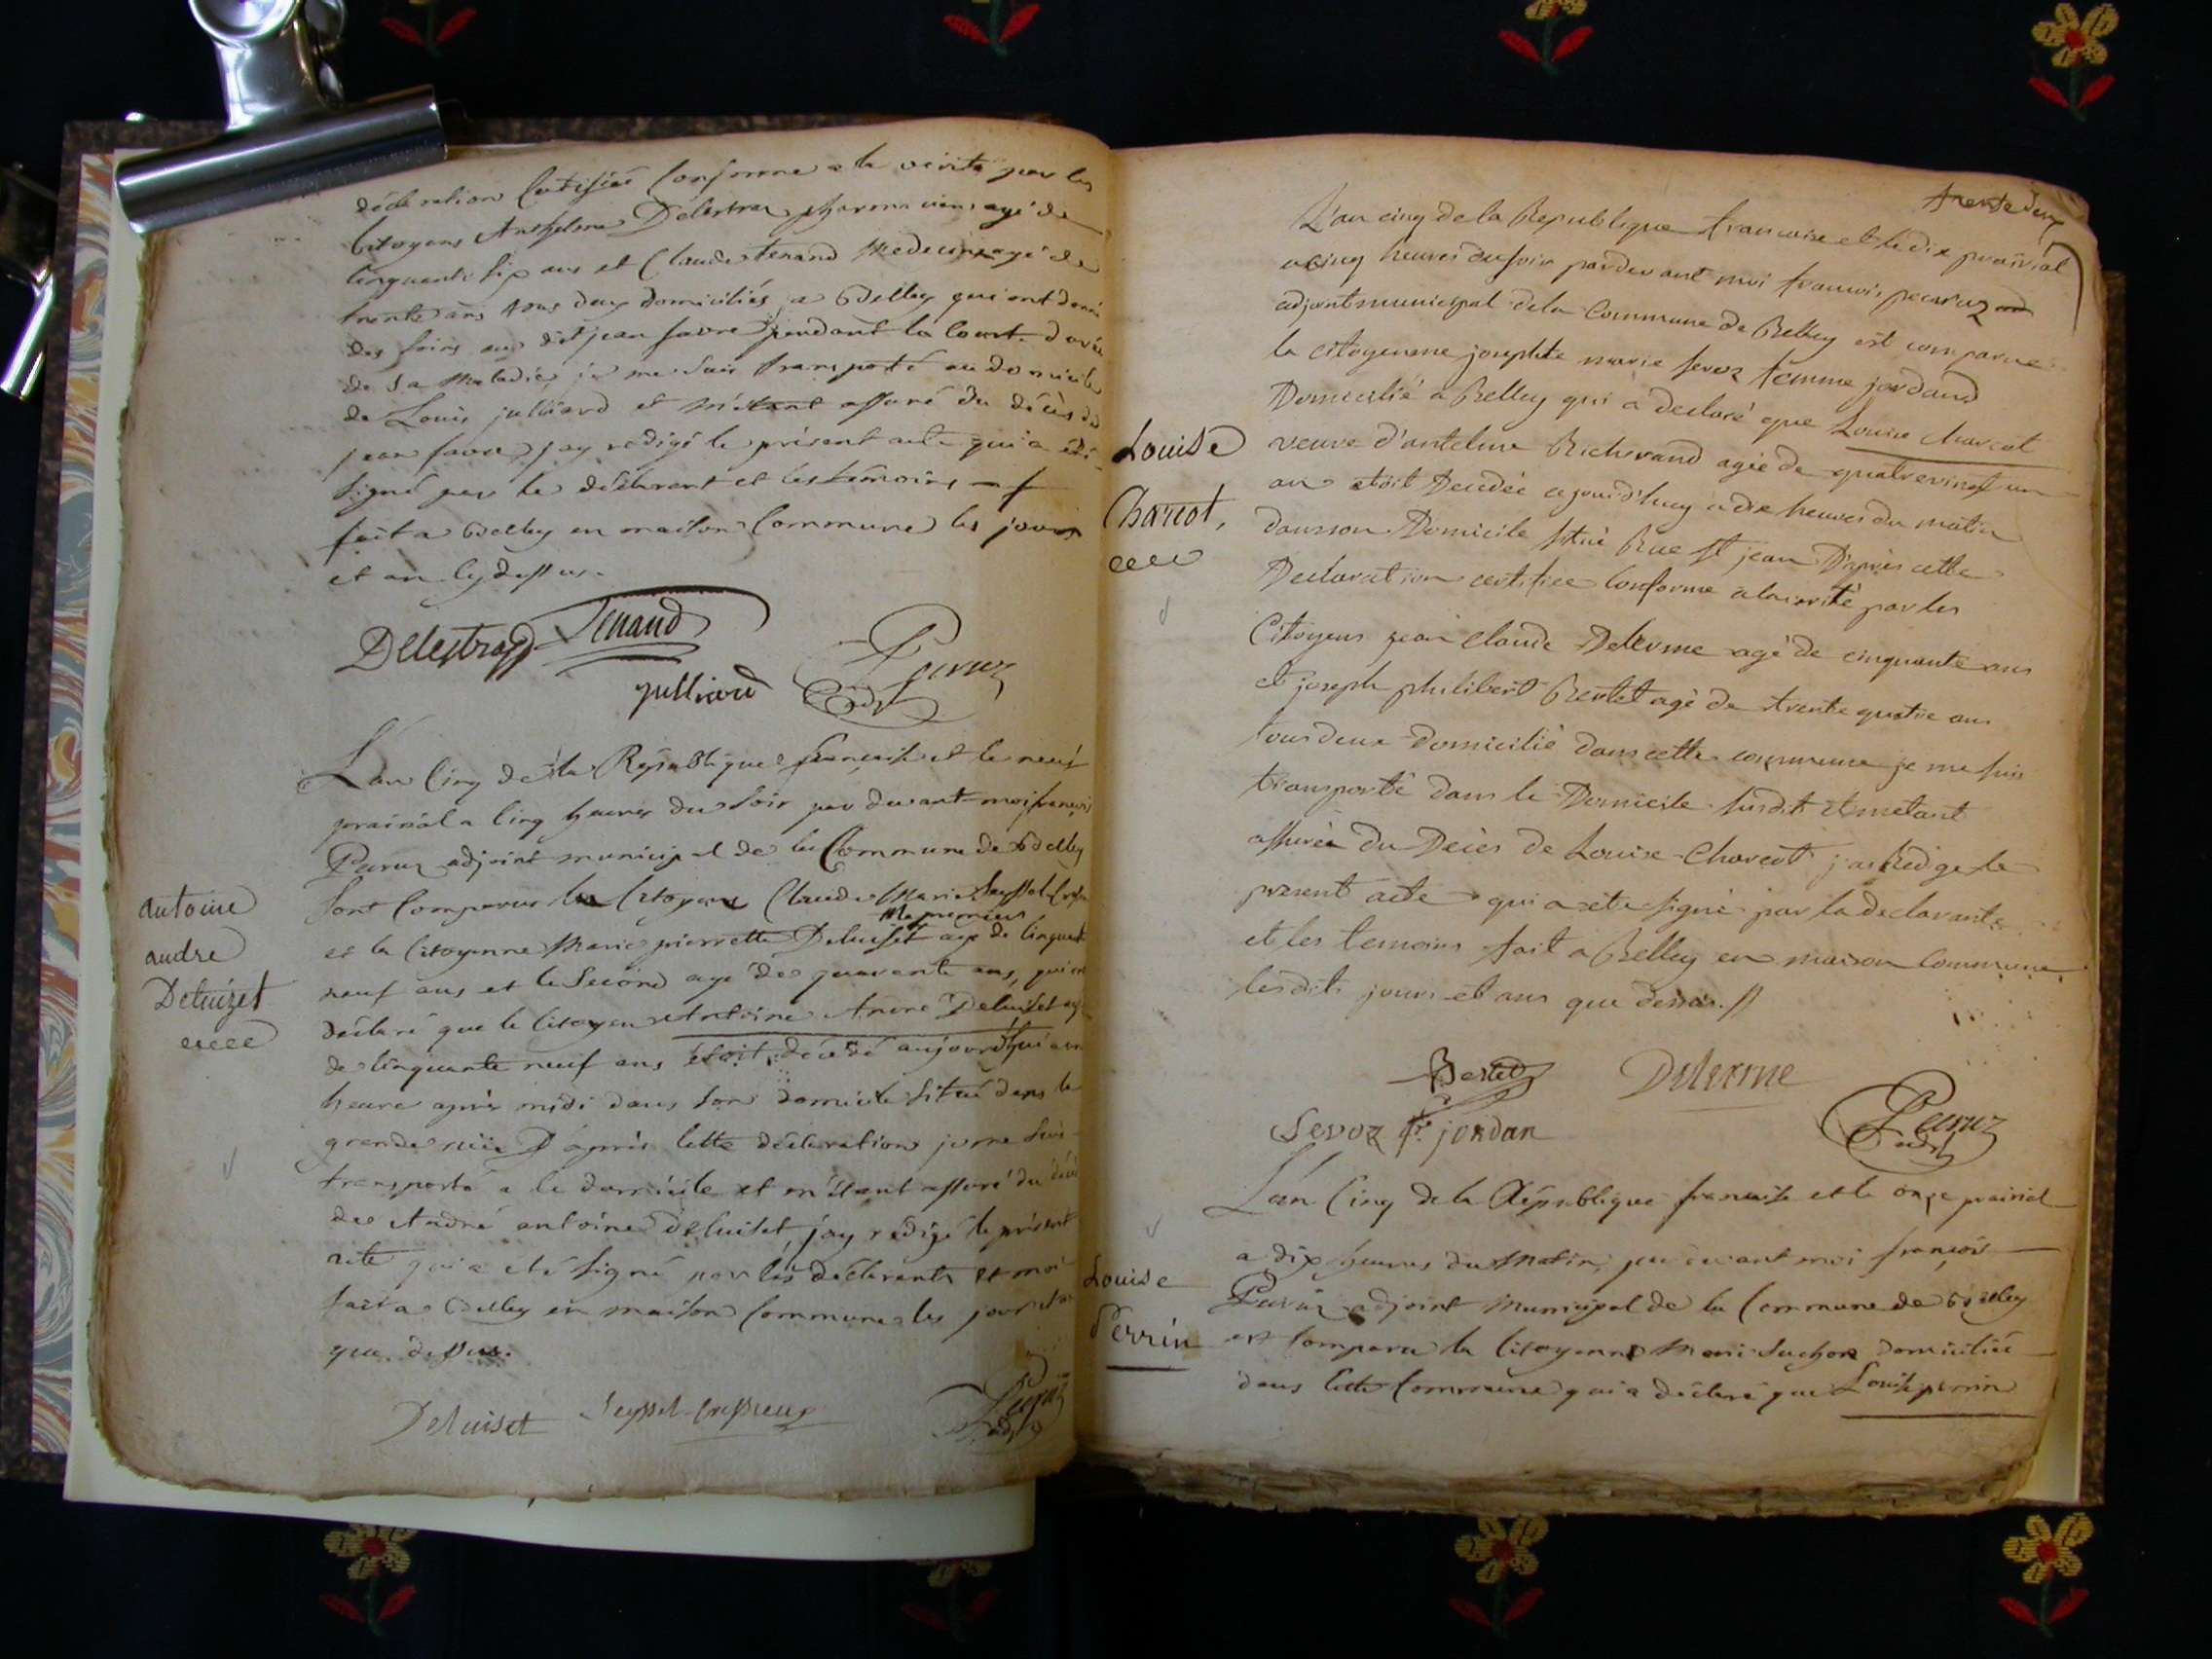 déclaration Certifiée Conforme a la vérité par les
Citoyens Anthelme Delestraz pharmacien agé de
Cinquante six ans et Claude tenand Medecin agé de
trente ans tous deux domiciliés a Belley qui ont donné
des soins au dit jean favre pendant la Court. durée
de sa Maladie, je me suis transporté au domicile
de Louis julliard et m'étant assuré du décès de
jean favre, j'ay rédigé le présent acte qui a été
signé par le déclarant et les témoins
fait a Belley en maison Commune les jours
et an Cy dessus.
Delestraz Tenand
julliard Peruz
adj
L'an Cinq de la République française et le neuf
prairial a Cinq heures du soir par devant moi françois
Peruz adjoint municipal de la Commune de Belley
Sont Comparus les Citoyens Claude Marie Seyssel
le premier
et la Citoyenne Marie pierrette Deluiset agé de Cinquante
neuf ans et le Second agé de quarante ans, qui ont
déclaré que le Citoyen Antoine André Deluiset agé
de Cinquante neuf ans étoit décédé aujourd'hui a une
heure après midi dans son domicile Situé dans la
grande rüe D'après Cette déclaration je me suis
transporté a le domicile et m'étant assuré du décès
de André antoine deluiset, j'ay rédigé le présent
acte qui a été signé par les déclarants et moi
fait a Belley en maison Commune les jour et an
que dessus.
Deluiset Seyssel
Peruz
adj
antoine
andre
Deluizet
trente deux
L'an cinq de la Republique francaise et le dix prairial
a cinq heures du soir pardevant moi francois peeruz
adjoint municipal de la Commune de Belley est comparue
la citoyenne josephte marie sevoz femme jordand
Domicilié a Belley qui a declaré que Louise charcot
veuve d'antelme Richerand agée de quatrevingt un
an etoit Decedée cejourd'huy a dix heures du matin
dans son Domicile situé Rue St jean D'après cette
Declaration certifiée Conforme a la verité par les
Citoyens jean claude Delerme agé de cinquante ans
et joseph philibert Bertet agé de trente quatre ans
tous deux domicilié dans cette commune je me suis
transporté dans le Domicile susdit et metant
assurée du Décès de Louise Charcot j'ai Redige le
present acte qui a eté signé par la declarante
et les temoins fait a Belley en maison Commune
lesdits jours et ans que dessus.
Louise
Charcot,
Bertet Delerme
Sevoz fe jordan Peeruz
adj
L'an Cinq de la République française et le onze prairial
a dix heures du Matin, par devant moi françois
Peruz adjoint Municipal de la Commune de Belley
est Comparu la Citoyenne Marie Suchon domiciliée
dans Cette Commune qui a déclaré que Louise perrin
Louise
Perrin